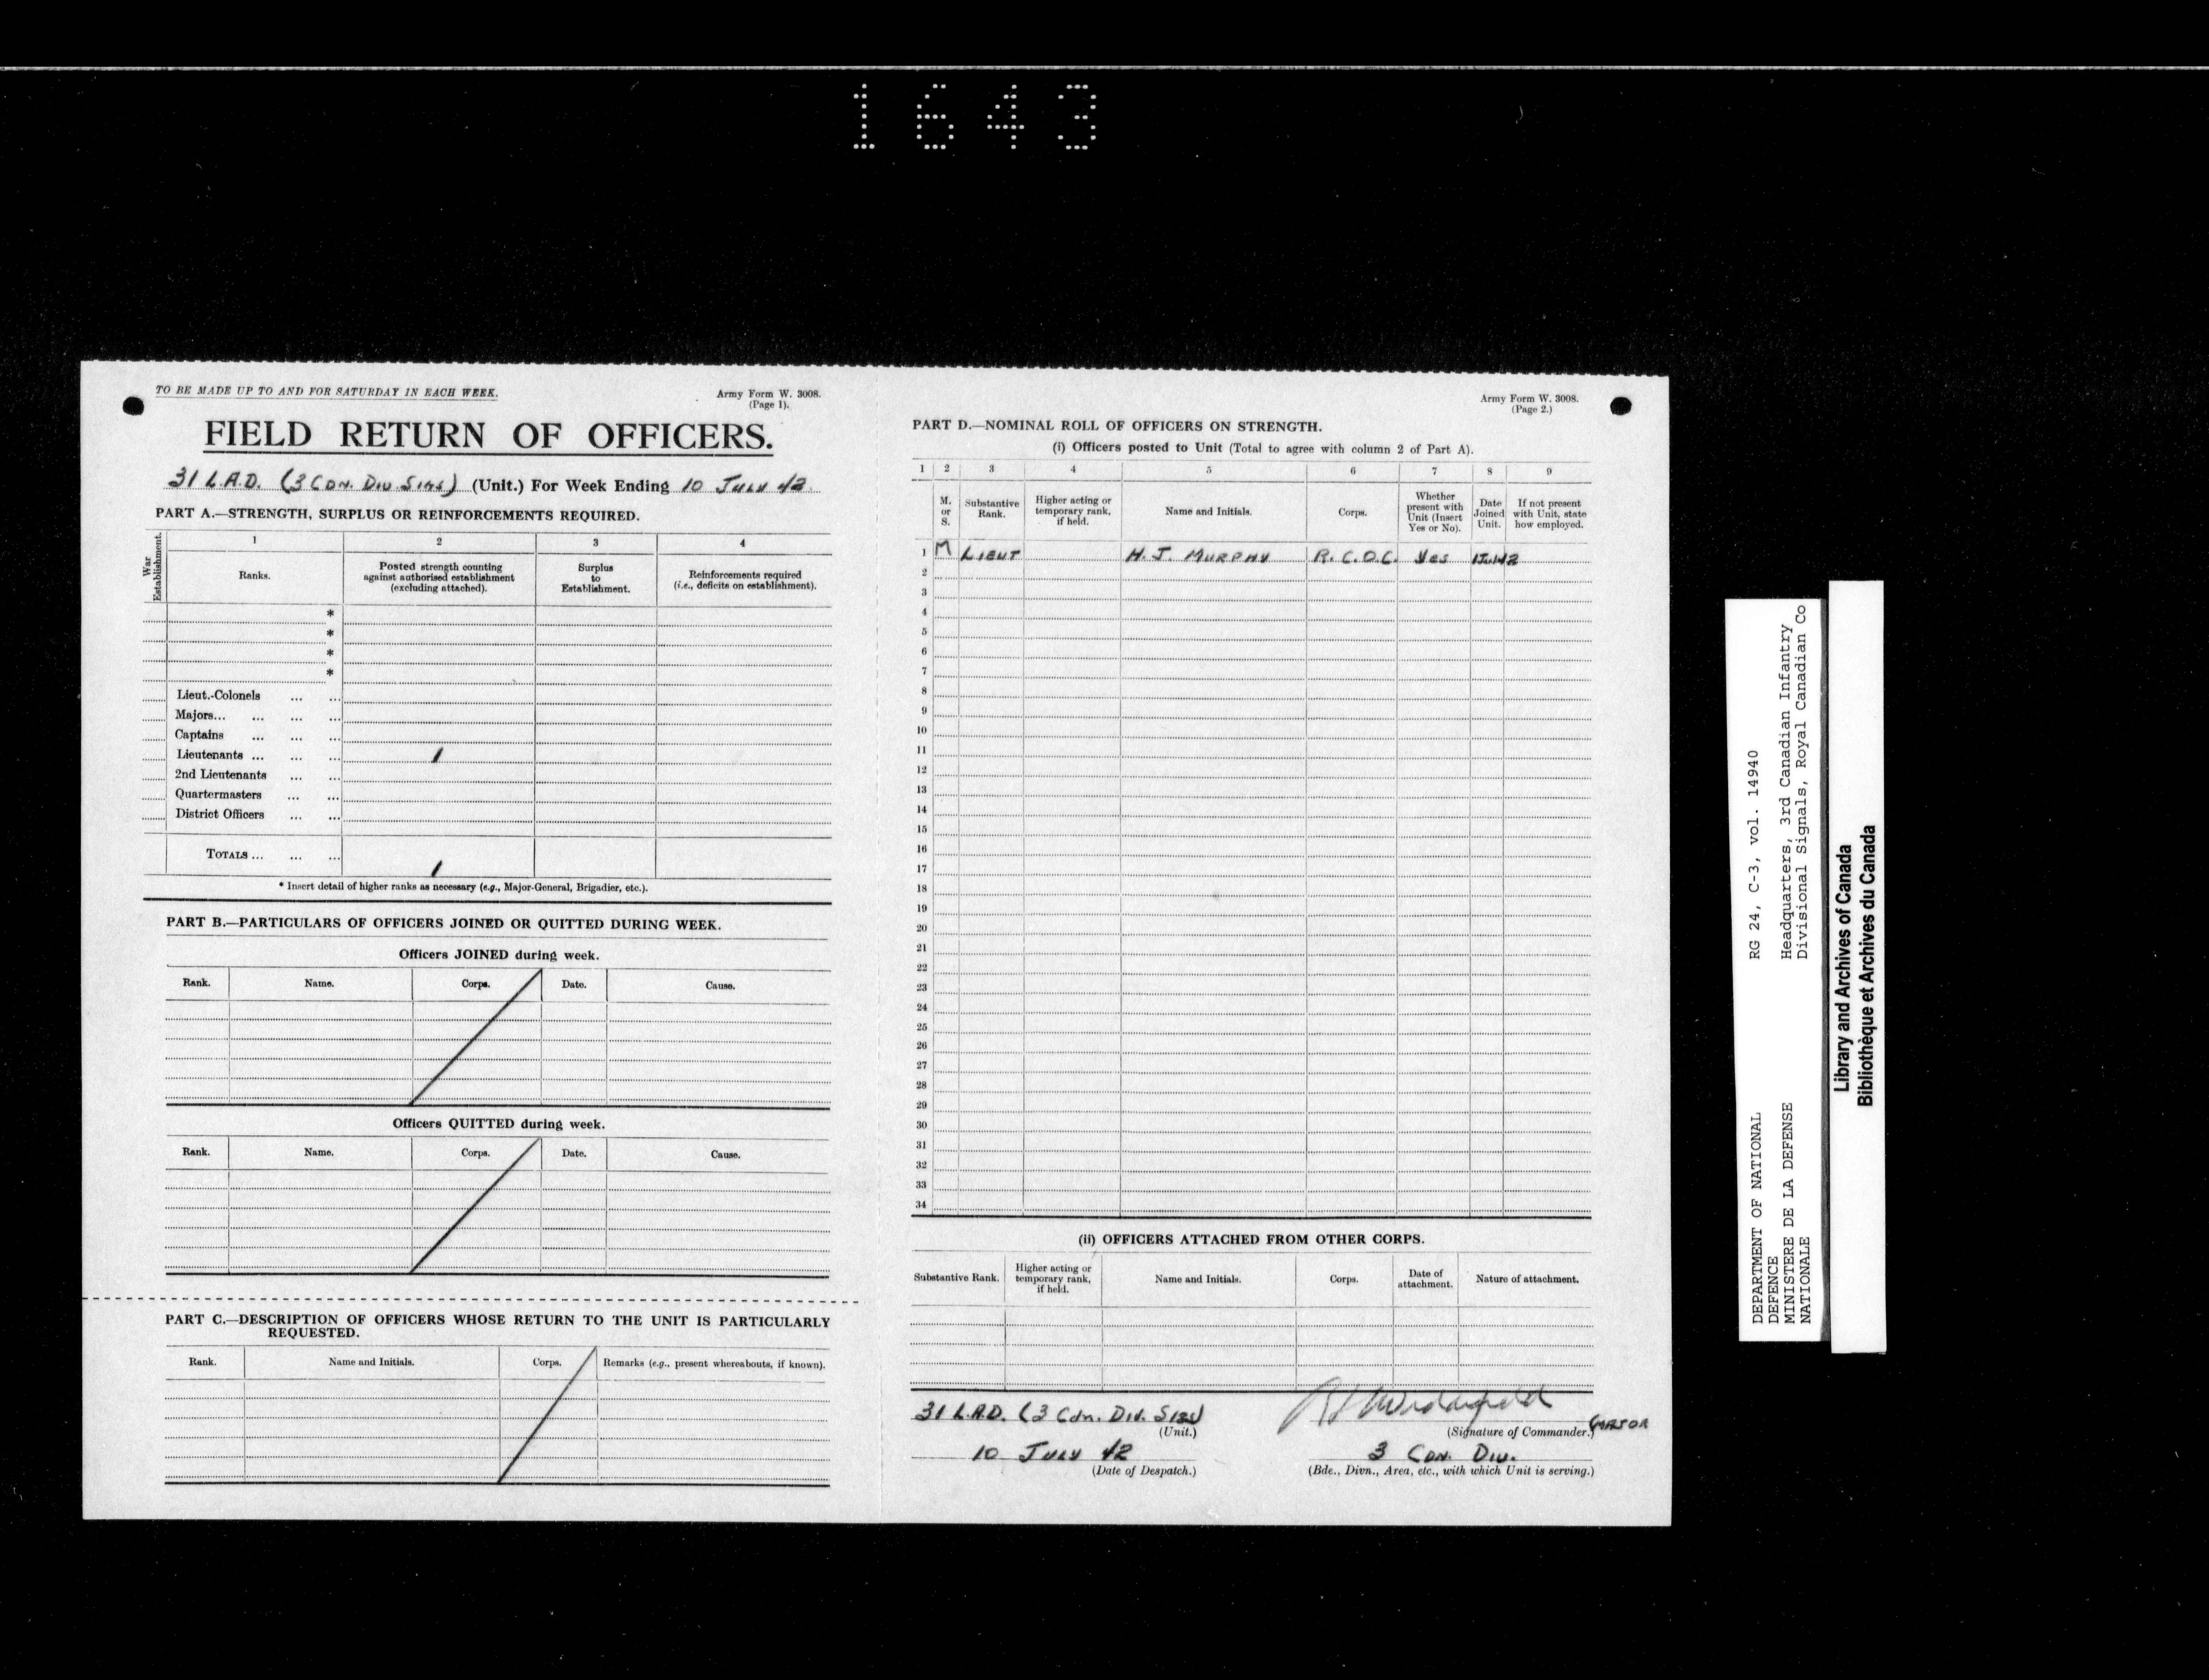 1643
TO BE MADE UP TO AND FOR SATURDAY IN EACH WEEK.
Army Form W. 3008.
(Page 1).
FIELD RETURN OF OFFICERS.
31 L.A.D. (3 CDN. DIV. SIGS) (Unit.) For Week Ending 10 JULY 42.
PART A.—STRENGTH, SURPLUS OR REINFORCEMENTS REQUIRED.
War Establishment.
1 2 3 4
Ranks.
Posted strength counting against authorised establishment (excluding attached).
Surplus to Establishment.
Reinforcements required (i.e., deficits on establishment).
*
*
*
*
Lieut.-Colonels ... ...
Majors... ... ... ...
Captains ... ... ...
Lieutenants ... ... ... 1
2nd Lieutenants ... ...
Quartermasters ... ...
District Officers ... ...
TOTALS ... ... ... 1
* Insert detail of higher ranks as necessary (e.g., Major-General, Brigadier, etc.).
PART B.—PARTICULARS OF OFFICERS JOINED OR QUITTED DURING WEEK.
Officers JOINED during week.
Rank. Name. Corps. Date. Cause.
Officers QUITTED during week.
Rank. Name. Corps. Date. Cause.
PART C.—DESCRIPTION OF OFFICERS WHOSE RETURN TO THE UNIT IS PARTICULARLY
REQUESTED.
Rank. Name and Initials. Corps. Remarks (e.g., present whereabouts, if known).
Army Form W. 3008.
(Page 2.)
PART D.—NOMINAL ROLL OF OFFICERS ON STRENGTH.
(i) Officers posted to Unit (Total to agree with column 2 of Part A).
1 2 3 4 5 6 7 8 9
M. or S.
Substantive Rank.
Higher acting or temporary rank, if held.
Name and Initials.
Corps.
Whether present with Unit (Insert Yes or No).
Date Joined Unit.
If not present with Unit, state how employed.
1 M LIEUT H. J. MURPHY R.C.O.C. Yes
2
3
4
5
6
7
8
9
10
11
12
13
14
15
16
17
18
19
20
21
22
23
24
25
26
27
28
29
30
31
32
33
34
(ii) OFFICERS ATTACHED FROM OTHER CORPS.
Substantive Rank.
Higher acting or temporary rank, if held.
Name and Initials.
Corps.
Date of attachment.
Nature of attachment.
31 L.A.D. (3 Cdn. Div. Sigs)
(Unit.)
(Signature of Commander.) (MAJOR
10 JULY 42
(Date of Despatch.)
3 CDN. DIV.
(Bde., Divn., Area, etc., with which Unit is serving.)
DEPARTMENT OF NATIONAL
DEFENCE
MINISTERE DE LA DEFENSE
NATIONALE
RG 24, C-3, vol. 14940
Headquarters, 3rd Canadian Infantry
Divisional Signals, Royal Canadian Co
Library and Archives of Canada
Bibliothèque et Archives du Canada